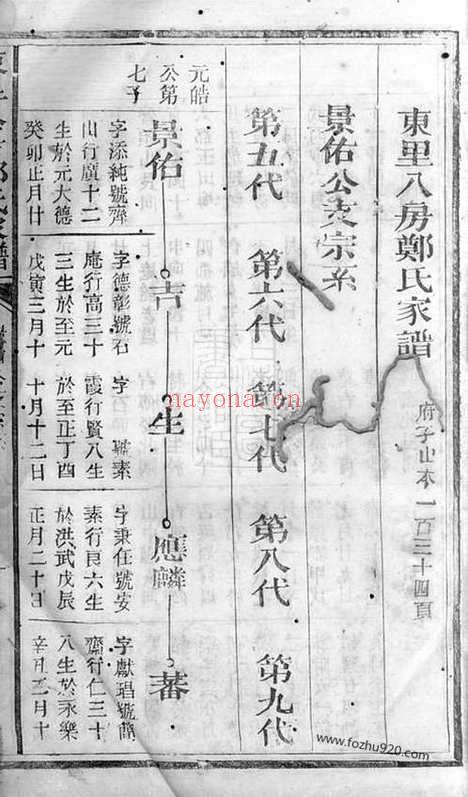 東里八房鄭氏家譜
府子山本一百三十四頁
景佑公支宗系
第五代 第六代 第七代 第八代 第九代
元皓
公第
七子
景佑 吉 生 應麟 蕃
字添純號齊
山行廣十二
生於元大德
癸卯正月廿
字德彰號石
庵行高三十
三生於至元
戊寅三月十
字 號素
霞行賢八生
於至正丁酉
十月十二日
字秉任號安
素行良六生
於洪武戊辰
正月二十日
字獻瑁號簡
齋行仁三十
八生於永樂
辛 月十
mayona.cn
www.fozhu920.com